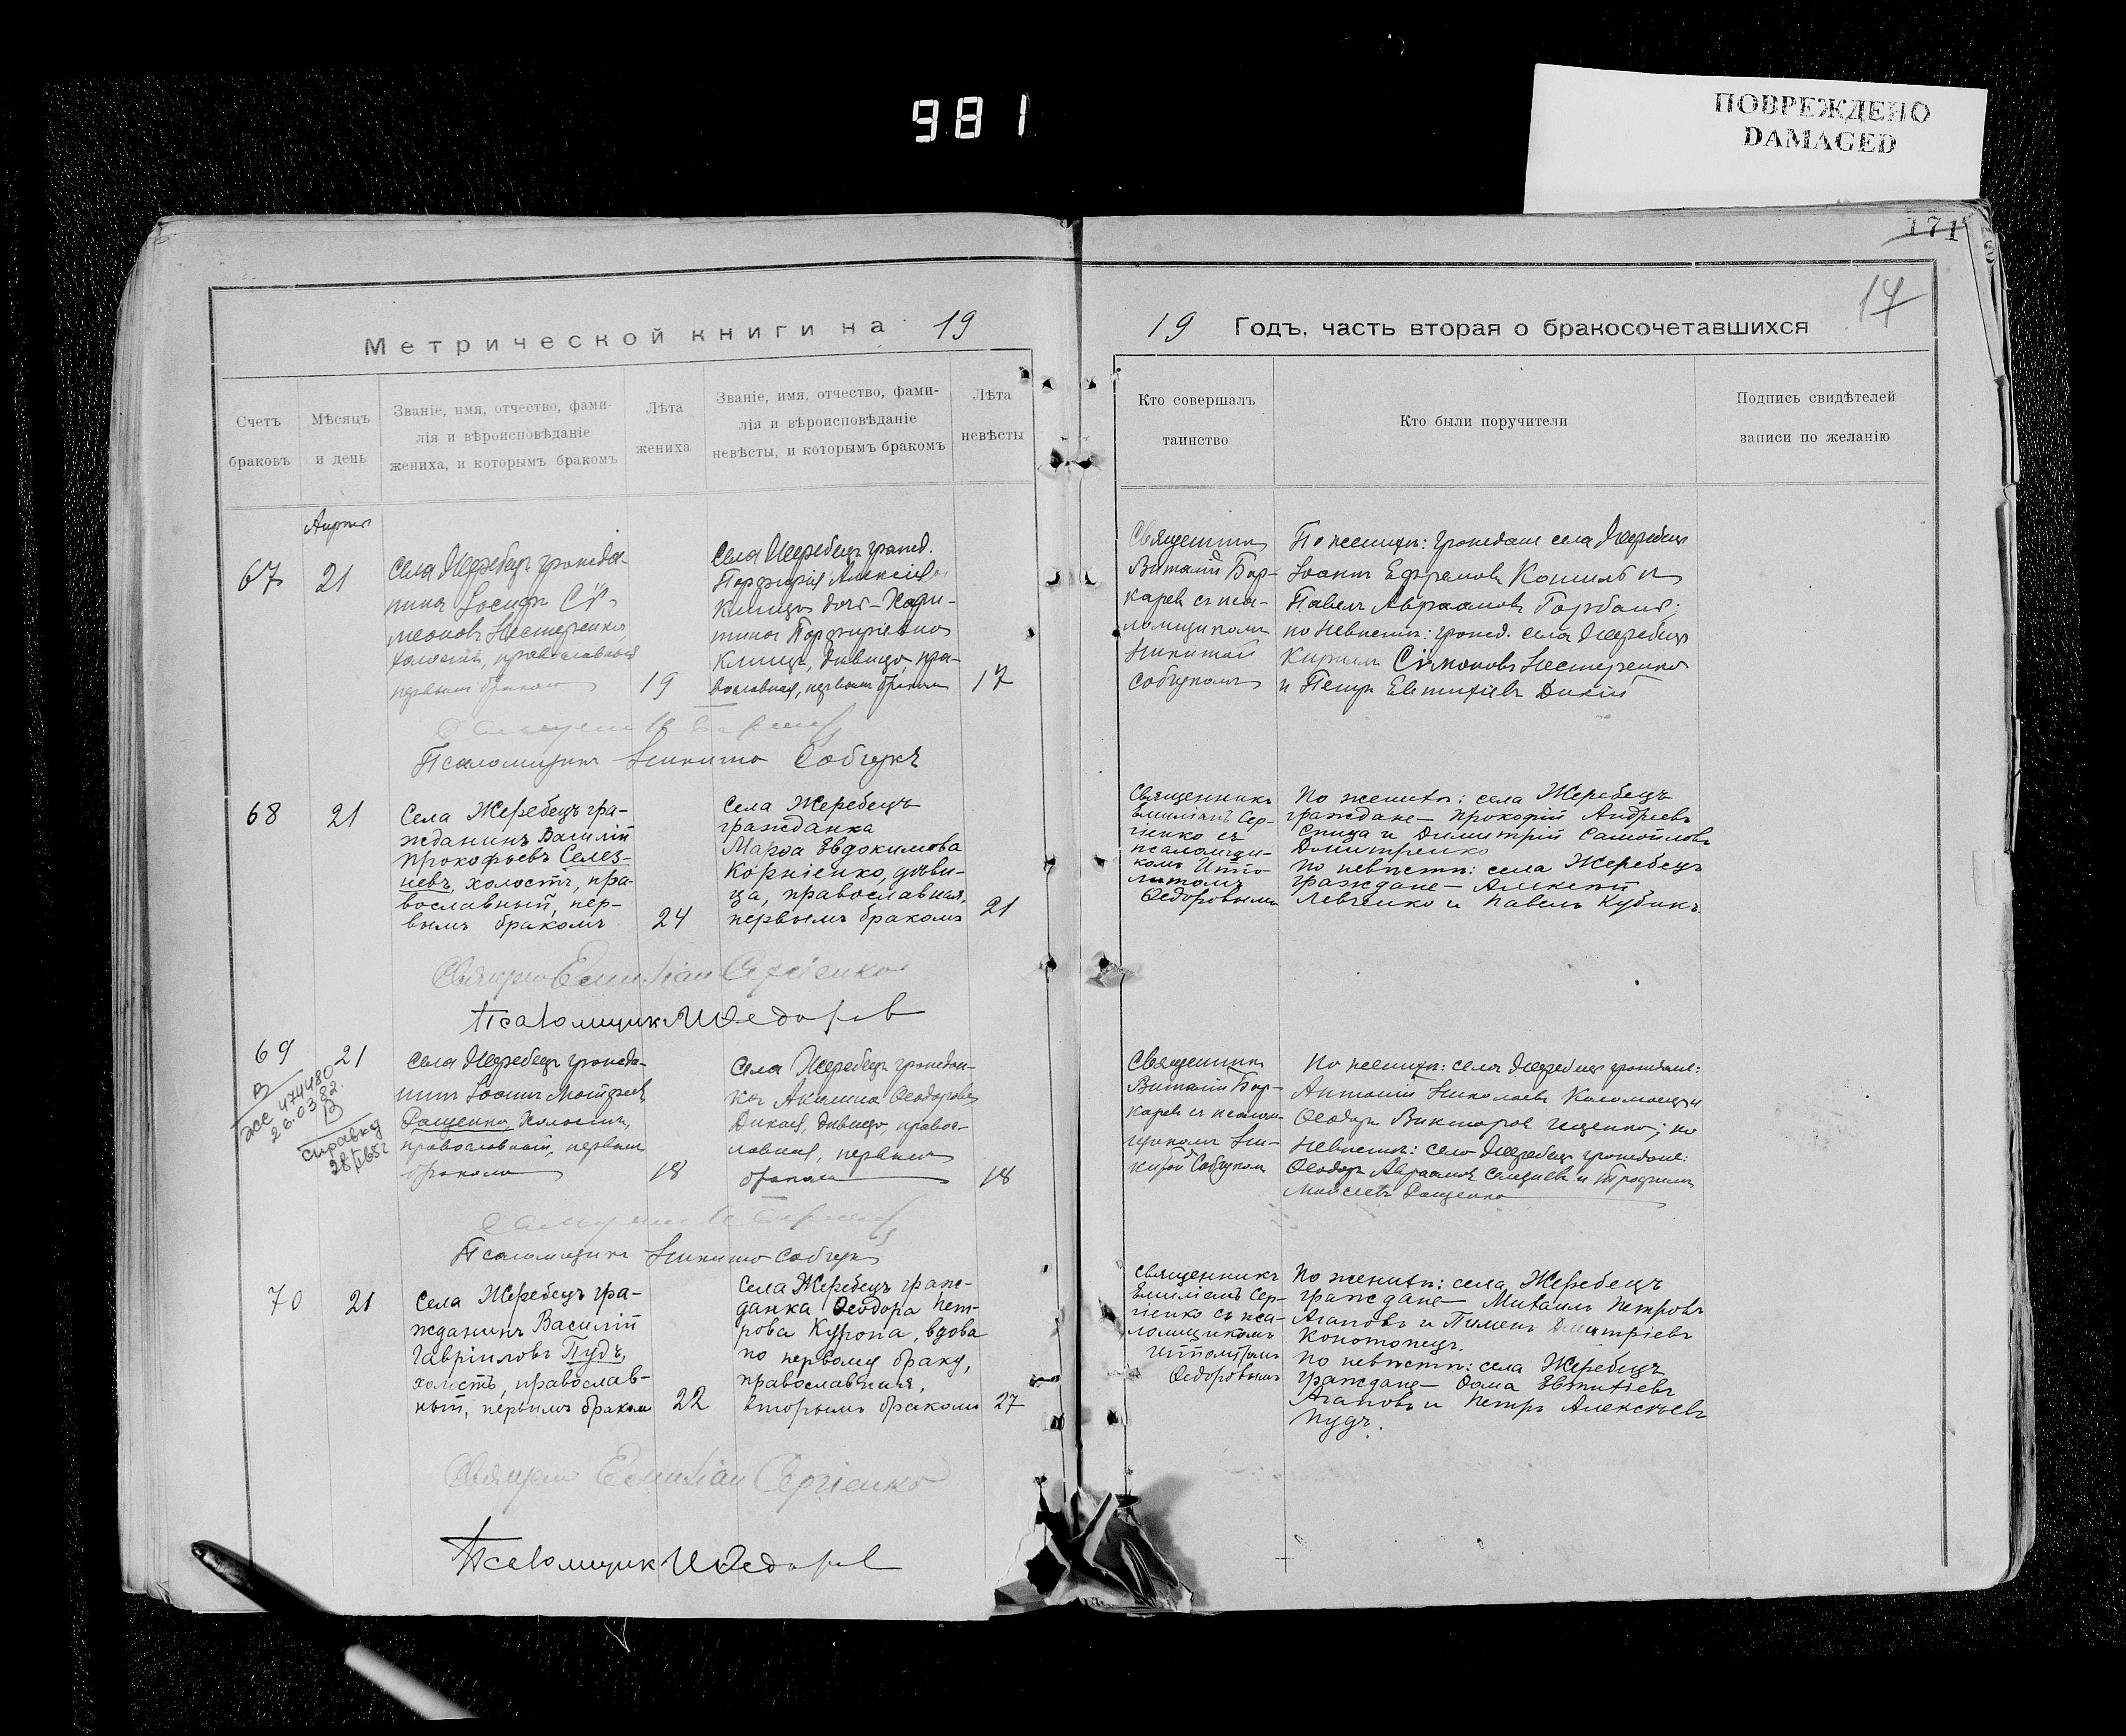 981
ПОВРЕЖДЕНО
DAMAGED
171
17
Метрической книги на 19
19 Годъ, часть вторая о бракосочетавшихся
Счетъ
браковъ
Мѣсяцъ
и день
Званіе, имя, отчество, фами-
лія и вѣроисповѣданіе
жениха, и которымъ бракомъ
Лѣта
жениха
Званіе, имя, отчество, фами-
лія и вѣроисповѣданіе
невѣсты, и которымъ бракомъ
Лѣта
невѣсты
Кто совершалъ
таинство
Кто были поручители
Подпись свидѣтелей
записи по желанію
67
21
Села Жеребецъ гражда-
нинъ Іосифъ Сѵ-
меоновъ Нестеренко,
холостъ, православный
первымъ бракомъ
19
Села Жеребецъ гражд.
Порфирія Алексіева
Клищъ дочь-Хари-
тина Порфиріевна
Клищъ, дѣвица, пра-
вославная, первымъ бракомъ
17
Священникъ
Виталій
карев съ пса-
ломщикомъ
Никитой
Собчукомъ
По женихѣ: граждане села Жеребецъ
Іоаннъ Ефремовъ и
Павелъ Авраамовъ Горбань;
по невѣстѣ: гражд. села Жеребецъ
Кириллъ Сѵмоновъ Нестеренко
и Петръ Евтихіевъ Дикій
Псаломщикъ Никита Собчукъ
68
21
Села Жеребецъ гра-
жданинъ Василій
Прокофьевъ Селез-
невъ, холостъ, пра-
вославный, пер-
вымъ бракомъ
24
Села Жеребецъ
гражданка
Марѳа Евдокимова
Корніенко, дѣви-
ца, православная,
первымъ бракомъ
21
Священникъ
Емиліанъ Сер-
гіенко съ
псаломщи-
комъ Иппо-
литомъ
Ѳедоровымъ
По женихѣ: села Жеребецъ
граждане - Прокофій Андреевъ
Спица и Димитрій Самойловъ
Домитренко
По невѣстѣ: села Жеребецъ
граждане - Алексѣй
Левченко и Павелъ Кубикъ.
Священ Емиліан Сергіенко
Псаломщик И Ѳедоров
69
21
474480
26.03.82.
справку
Села Жеребецъ гражда-
нинъ Іоаннъ Матфеев
Ращенко, холостъ,
православный, первымъ
бракомъ
18
Села Жеребецъ граждан-
ка Акилина Ѳеодорова
Дикая, дѣвица, правос-
лавная, первымъ
бракомъ
18
Священникъ
Виталій
карев съ псалом-
щикомъ Ни-
китой Собчуком
По женихѣ: села Жеребецъ граждане:
Антоній Николаевъ Коломоецъ и
Ѳеодоръ Викторов Ищенко; по
невѣстѣ: села Жеребецъ граждане:
Ѳеодоръ Авраамовъ и Трофимъ
Моисеевъ Ращенко
Псаломщикъ Никита Собчукъ
70
21
Села Жеребецъ гра-
жданинъ Василій
Гавріиловъ Пудъ,
холостъ, православ-
ный, первымъ бракомъ
22
Села Жеребецъ граж-
данка Ѳеодора Пет-
рова Куропа, вдова
по первому браку,
православная,
вторымъ бракомъ
27
Священникъ
Емиліанъ Сер-
гіенко съ пса-
ломщикомъ
Ипполитомъ
Ѳедоровымъ
По женихѣ: села Жеребецъ
граждане - Михаилъ Петровъ
Агаповъ и Пименъ Дмитріевъ
Конотопецъ.
По невѣстѣ: села Жеребецъ
граждане - Ѳома Евтихіевъ
Агаповъ и Петръ Алексѣевъ
Пудъ.
Священ Емиліан Сергіенко
Псаломщик И Ѳедоров